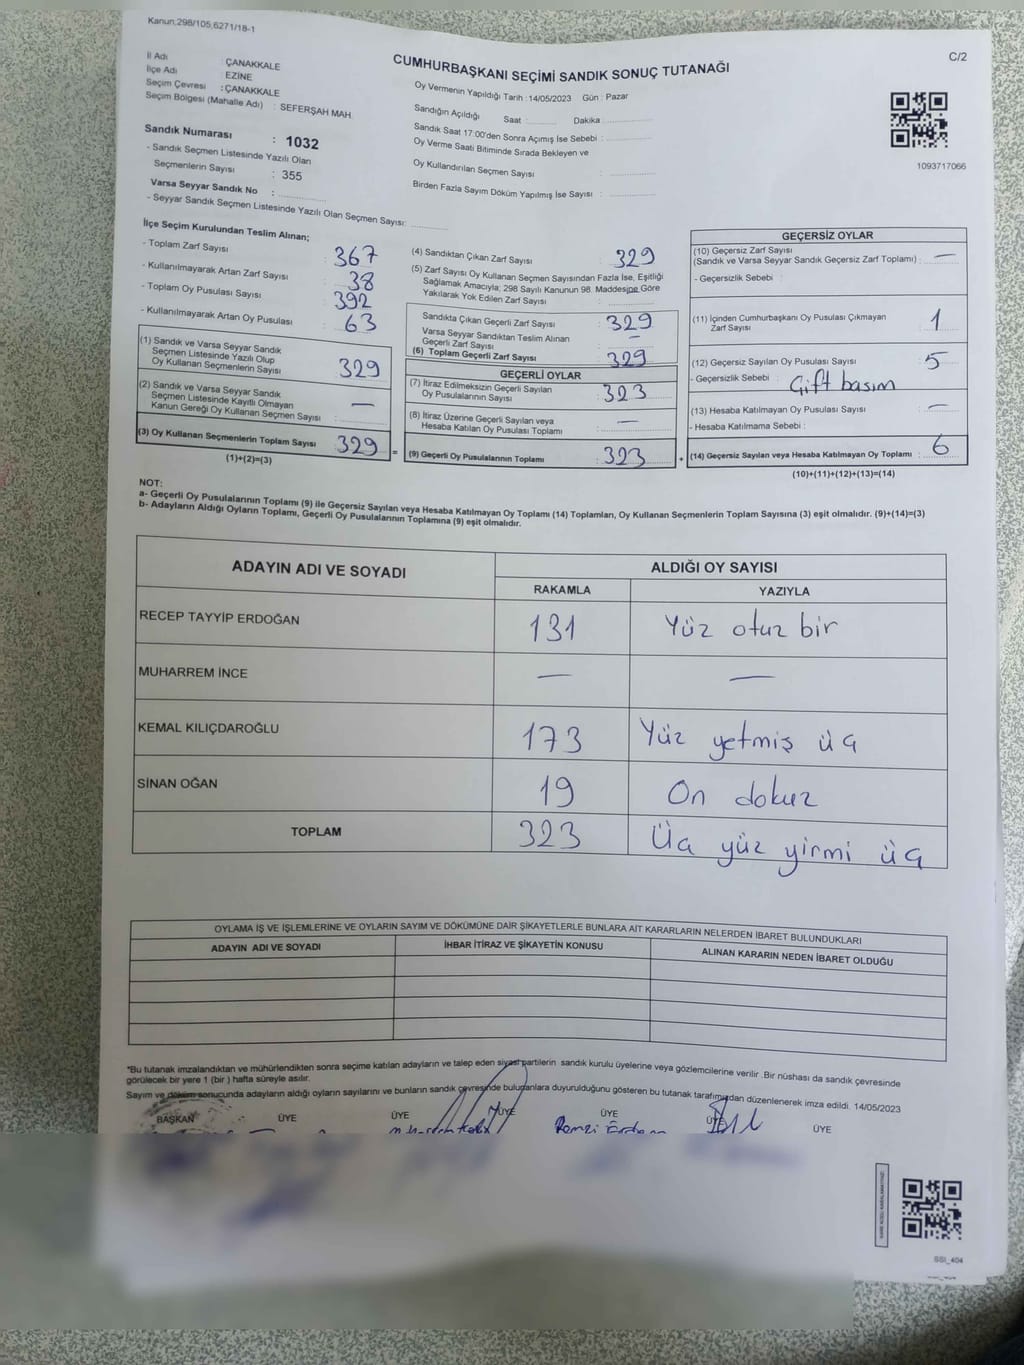 Kanun:298/105,6271/18-1
C/2
CUMHURBAŞKANI SEÇİMİ SANDIK SONUÇ TUTANAĞI
İl Adı : ÇANAKKALE
İlçe Adı : EZİNE
Seçim Çevresi : ÇANAKKALE
Seçim Bölgesi (Mahalle Adı) : SEFERŞAH MAH.
Sandık Numarası : 1032
- Sandık Seçmen Listesinde Yazılı Olan
Seçmenlerin Sayısı : 355
Varsa Seyyar Sandık No :
- Seyyar Sandık Seçmen Listesinde Yazılı Olan Seçmen Sayısı:
Oy Vermenin Yapıldığı Tarih : 14/05/2023 Gün : Pazar
Sandığın Açıldığı Saat : Dakika :
Sandık Saat 17:00'den Sonra Açımış İse Sebebi :
Oy Verme Saati Bitiminde Sırada Bekleyen ve
Oy Kullandırılan Seçmen Sayısı :
Birden Fazla Sayım Döküm Yapılmış İse Sayısı :
1093717066
İlçe Seçim Kurulundan Teslim Alınan;
- Toplam Zarf Sayısı : 367
- Kullanılmayarak Artan Zarf Sayısı : 38
- Toplam Oy Pusulası Sayısı : 392
- Kullanılmayarak Artan Oy Pusulası : 63
(1) Sandık ve Varsa Seyyar Sandık
Seçmen Listesinde Yazılı Olup
Oy Kullanan Seçmenlerin Sayısı : 329
(2) Sandık ve Varsa Seyyar Sandık
Seçmen Listesinde Kayıtlı Olmayan
Kanun Gereği Oy Kullanan Seçmen Sayısı : —
(3) Oy Kullanan Seçmenlerin Toplam Sayısı : 329
(1)+(2)=(3)
=
(4) Sandıktan Çıkan Zarf Sayısı : 329
(5) Zarf Sayısı Oy Kullanan Seçmen Sayısından Fazla İse, Eşitliği
Sağlamak Amacıyla; 298 Sayılı Kanunun 98. Maddesine Göre
Yakılarak Yok Edilen Zarf Sayısı :
Sandıkta Çıkan Geçerli Zarf Sayısı : 329
Varsa Seyyar Sandıktan Teslim Alınan
Geçerli Zarf Sayısı : —
(6) Toplam Geçerli Zarf Sayısı : 329
GEÇERLİ OYLAR
(7) İtiraz Edilmeksizin Geçerli Sayılan
Oy Pusulalarının Sayısı : 323
(8) İtiraz Üzerine Geçerli Sayılan veya
Hesaba Katılan Oy Pusulası Toplamı : —
(9) Geçerli Oy Pusulalarının Toplamı : 323
+
GEÇERSİZ OYLAR
(10) Geçersiz Zarf Sayısı
(Sandık ve Varsa Seyyar Sandık Geçersiz Zarf Toplamı) : —
- Geçersizlik Sebebi :
(11) İçinden Cumhurbaşkanı Oy Pusulası Çıkmayan
Zarf Sayısı : 1
(12) Geçersiz Sayılan Oy Pusulası Sayısı : 5
- Geçersizlik Sebebi : Çift basım
(13) Hesaba Katılmayan Oy Pusulası Sayısı : —
- Hesaba Katılmama Sebebi :
(14) Geçersiz Sayılan veya Hesaba Katılmayan Oy Toplamı : 6
(10)+(11)+(12)+(13)=(14)
NOT:
a- Geçerli Oy Pusulalarının Toplamı (9) ile Geçersiz Sayılan veya Hesaba Katılmayan Oy Toplamı (14) Toplamları, Oy Kullanan Seçmenlerin Toplam Sayısına (3) eşit olmalıdır. (9)+(14)=(3)
b- Adayların Aldığı Oyların Toplamı, Geçerli Oy Pusulalarının Toplamına (9) eşit olmalıdır.
ADAYIN ADI VE SOYADI ALDIĞI OY SAYISI
RAKAMLA YAZIYLA
RECEP TAYYİP ERDOĞAN 131 Yüz otuz bir
MUHARREM İNCE — —
KEMAL KILIÇDAROĞLU 173 Yüz yetmiş üç
SİNAN OĞAN 19 On dokuz
TOPLAM 323 Üç yüz yirmi üç
OYLAMA İŞ VE İŞLEMLERİNE VE OYLARIN SAYIM VE DÖKÜMÜNE DAİR ŞİKAYETLERLE BUNLARA AİT KARARLARIN NELERDEN İBARET BULUNDUKLARI
ADAYIN ADI VE SOYADI İHBAR İTİRAZ VE ŞİKAYETİN KONUSU ALINAN KARARIN NEDEN İBARET OLDUĞU
*Bu tutanak imzalandıktan ve mühürlendikten sonra seçime katılan adayların ve talep eden siyasi partilerin sandık kurulu üyelerine veya gözlemcilerine verilir .Bir nüshası da sandık çevresinde
görülecek bir yere 1 (bir ) hafta süreyle asılır.
Sayım ve döküm sonucunda adayların aldığı oyların sayılarını ve bunların sandık çevresinde bulunanlara duyurulduğunu gösteren bu tutanak tarafımızdan düzenlenerek imza edildi. 14/05/2023
BAŞKAN ÜYE ÜYE ÜYE ÜYE ÜYE ÜYE
SSI_404